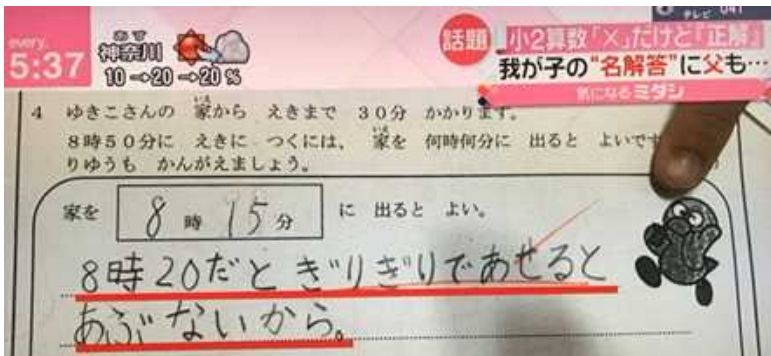 every.
5:37
あす
神奈川
10→20→20%
テレビ
話題
小2算数「×」だけど「正解」
我が子の“名解答”に父も…
気になるミダシ
4 ゆきこさんの 家から えきまで 30分 かかります。
いえ
8時50分に えきに つくには、 家を 何時何分に 出ると よいです
いえ
りゆうも かんがえましょう。
家を 8時15分 に 出ると よい。
8時20だと ぎりぎりであせると
あぶないから。